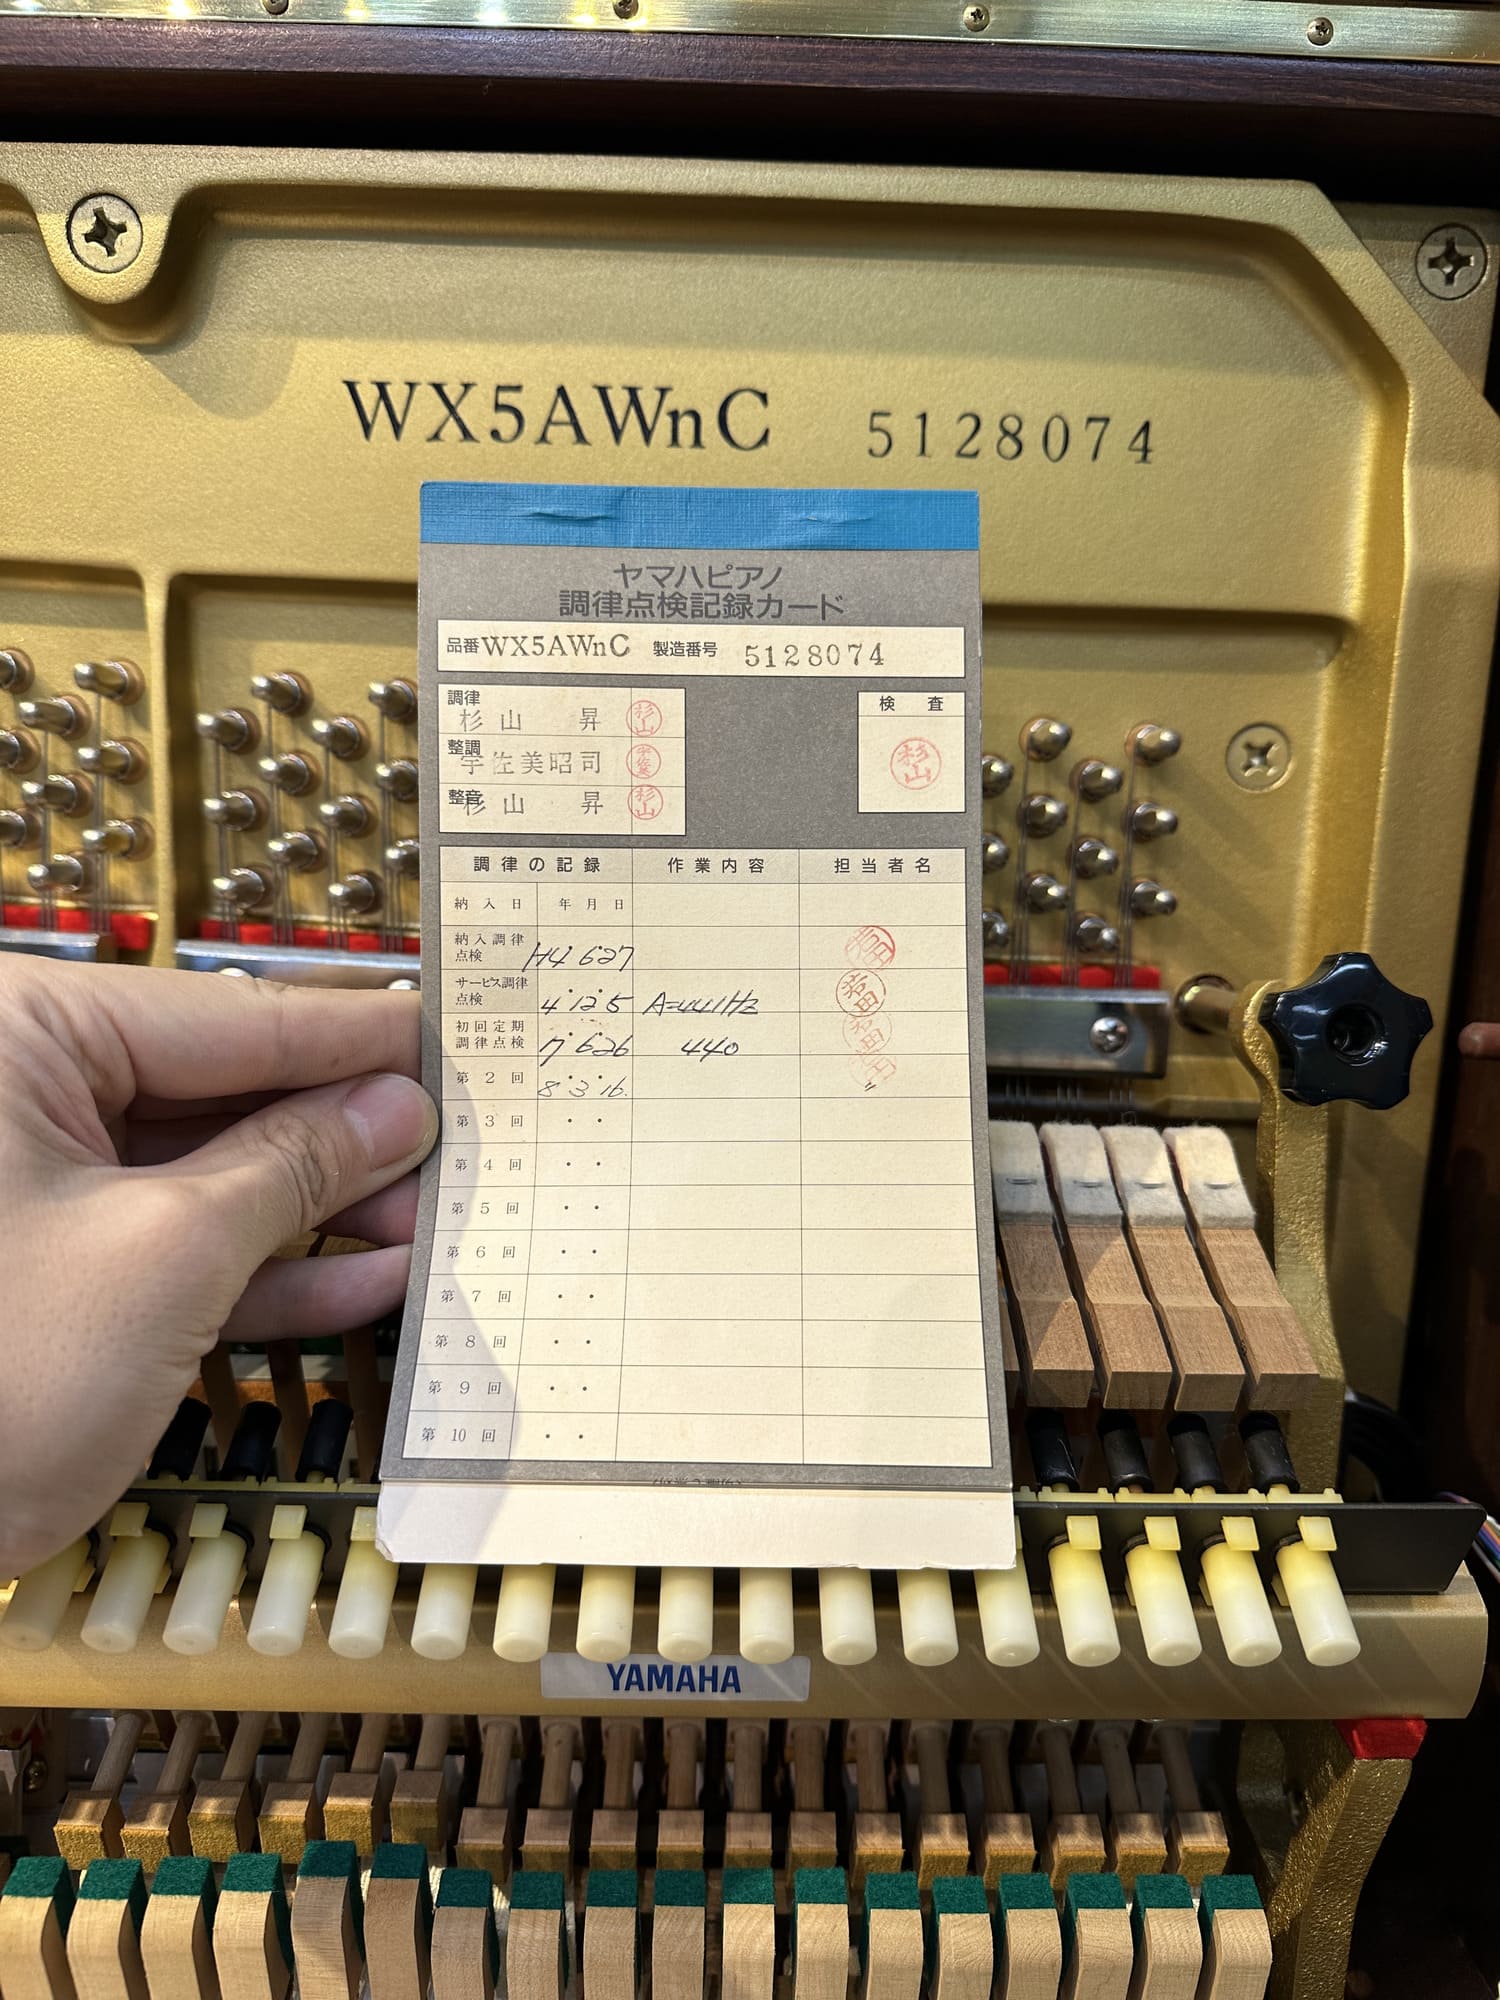 WX5AWnC 5128074
ヤマハピアノ
調律点検記録カード
品番 WX5AWnC 製造番号 5128074
調律 杉山 昇 杉山
整調 宇佐美昭司 宇佐美
整音 杉山 昇 杉山
検査
杉山
調律の記録 作業内容 担当者名
納入日 年月日
納入調律点検 H4.6.27
サービス調律点検 4.12.5 A=441Hz 岩田
初回定期調律点検 7.6.26 440 岩田
第2回 8.3.16. 〃
第3回 ・・
第4回 ・・
第5回 ・・
第6回 ・・
第7回 ・・
第8回 ・・
第9回 ・・
第10回 ・・
YAMAHA